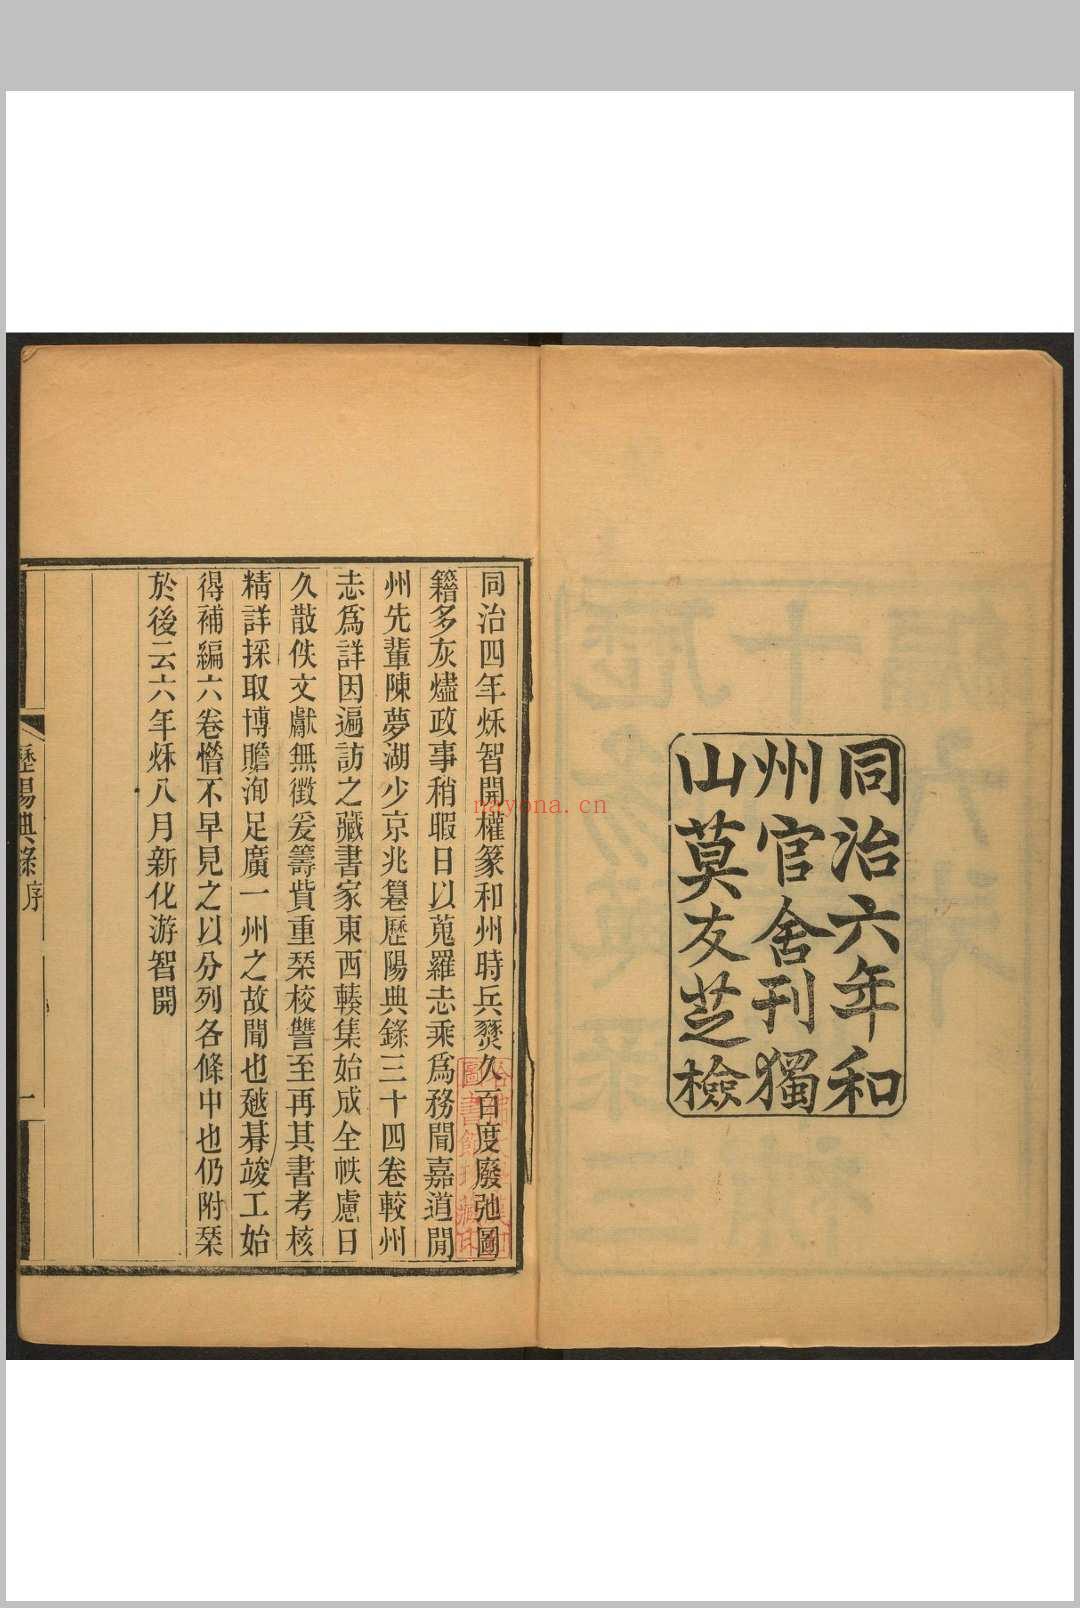 同治六年和
州官舍刊獨
山莫友芝檢
同治四年秌智開權篆和州時兵燹久百度廢弛圖
籍多灰燼政事稍暇日以蒐羅志乘爲務聞嘉道閒
州先輩陳夢湖少京兆篹歷陽典錄三十四卷較州
志爲詳因遍訪之藏書家東西輳集始成全帙慮日
久散佚文獻無徵爰籌貲重栞校讐至再其書考核
精詳採取博贍洵足廣一州之故聞也越朞竣工始
得補編六卷憯不早見之以分列各條中也仍附栞
於後云六年秌八月新化游智開
歷陽典錄序
一
nayona.cn